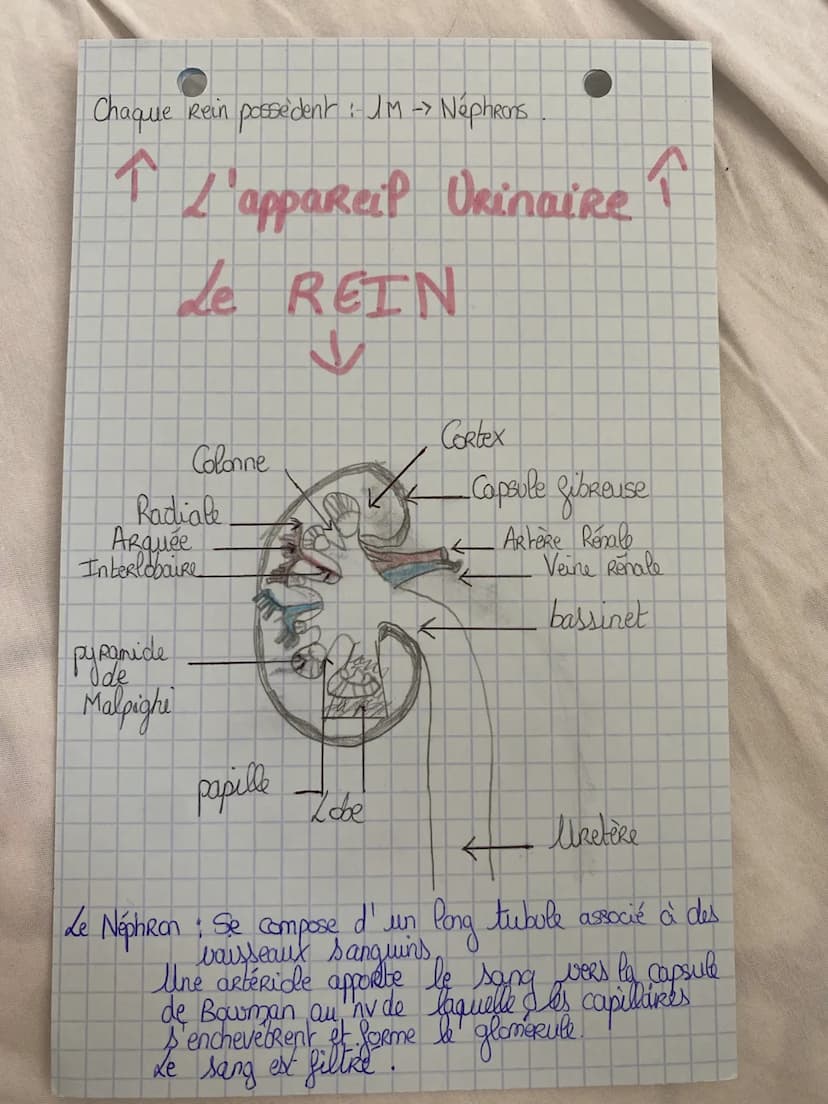 Chaque Rein possèdent : 1M → Néphrons.
↑ L'appareil Urinaire ↑
Le REIN
↓
Cortex
Colonne
Capsule fibreuse
Radiale
Arquée
Artère Rénale
Interlobaire
Veine Rénale
bassinet
pyramide
de
Malpighi
papille
Lobe
Uretère
Le Néphron : Se compose d'un long tubule associé à des
vaisseaux sanguins
Une artériole apporte le sang vers la capsule
de Bowman au nv de laquelle les capillaires
s'enchevêtrent et forme le glomérule.
Le sang est filtré.